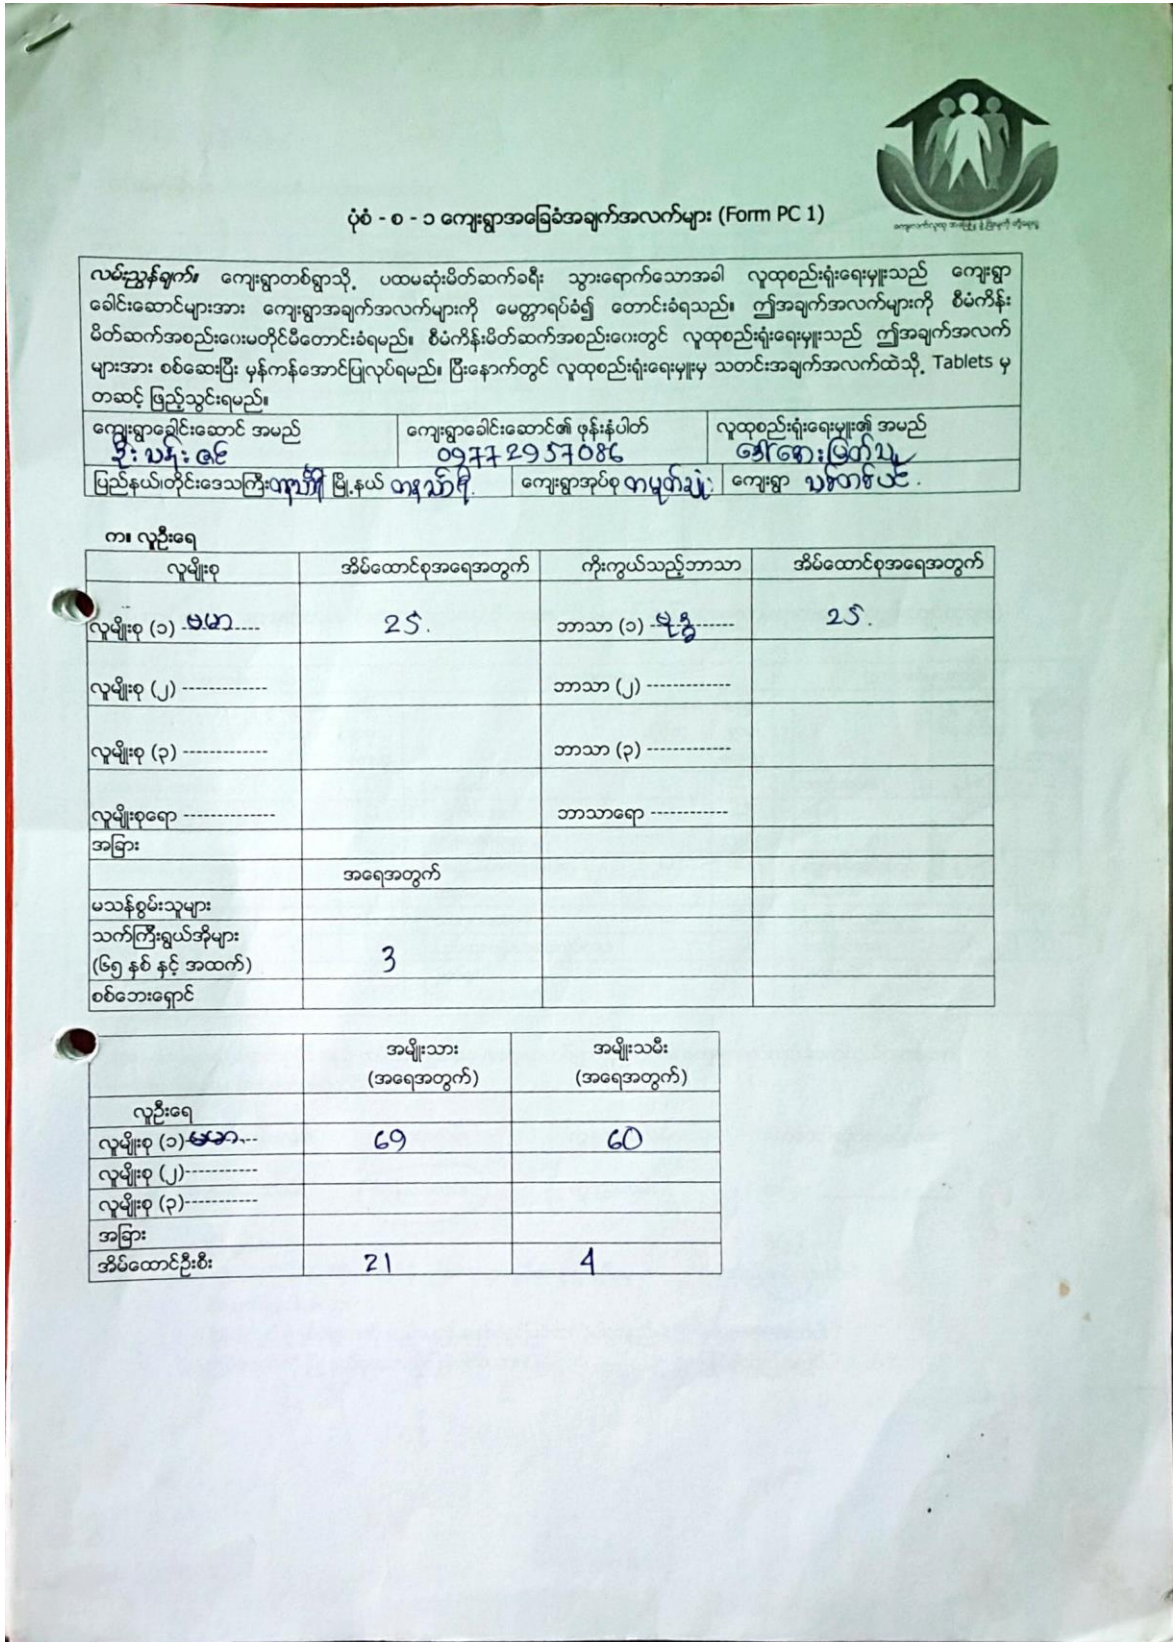 ပုံစံ - စ - ၁ ကျေးရွာအခြေခံအချက်အလက်များ (Form PC 1)
လမ်းညွှန်ချက်။ ကျေးရွာတစ်ရွာသို့ ပထမဆုံးမိတ်ဆက်ခရီး သွားရောက်သောအခါ လူထုစည်းရုံးရေးမှူးသည် ကျေးရွာ
ခေါင်းဆောင်များအား ကျေးရွာအချက်အလက်များကို မေတ္တာရပ်ခံ၍ တောင်းခံရသည်။ ဤအချက်အလက်များကို စီမံကိန်း
မိတ်ဆက်အစည်းဝေးမတိုင်မီတောင်းခံရမည်။ စီမံကိန်းမိတ်ဆက်အစည်းဝေးတွင် လူထုစည်းရုံးရေးမှူးသည် ဤအချက်အလက်
များအား စစ်ဆေးပြီး မှန်ကန်အောင်ပြုလုပ်ရမည်။ ပြီးနောက်တွင် လူထုစည်းရုံးရေးမှူးမှ သတင်းအချက်အလက်ထဲသို့ Tablets မှ
တဆင့် ဖြည့်သွင်းရမည်။
ကျေးရွာခေါင်းဆောင် အမည် ကျေးရွာခေါင်းဆောင်၏ ဖုန်းနံပါတ် လူထုစည်းရုံးရေးမှူး၏ အမည်
ဦးသန်းဇင် 09772957086
ပြည်နယ်၊တိုင်းဒေသကြီး တနင်္သာရီ မြို့နယ် တနင်္သာရီ ကျေးရွာအုပ်စု ကျေးရွာ သစ်တစ်ပင်
က။ လူဦးရေ
လူမျိုးစု အိမ်ထောင်စုအရေအတွက် ကိုးကွယ်သည့်ဘာသာ အိမ်ထောင်စုအရေအတွက်
လူမျိုးစု (၁) ဗမာ 25. ဘာသာ (၁) ဗုဒ္ဓ 25.
လူမျိုးစု (၂) ------------- ဘာသာ (၂) -------------
လူမျိုးစု (၃) ------------- ဘာသာ (၃) -------------
လူမျိုးစုရော ------------- ဘာသာရော ------------
အခြား
အရေအတွက်
မသန်စွမ်းသူများ
သက်ကြီးရွယ်အိုများ
(၆၅ နှစ် နှင့် အထက်) 3
စစ်ဘေးရှောင်
အမျိုးသား အမျိုးသမီး
(အရေအတွက်) (အရေအတွက်)
လူဦးရေ
လူမျိုးစု (၁) ဗမာ 69 60
လူမျိုးစု (၂)-----------
လူမျိုးစု (၃)-----------
အခြား
အိမ်ထောင်ဦးစီး 21 4